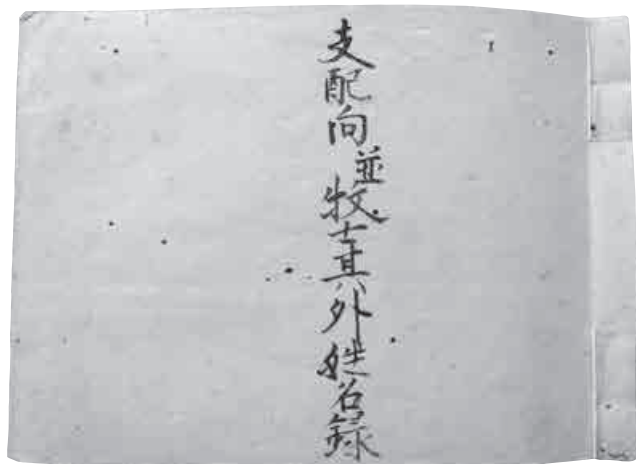 支配向並牧士其外姓名録